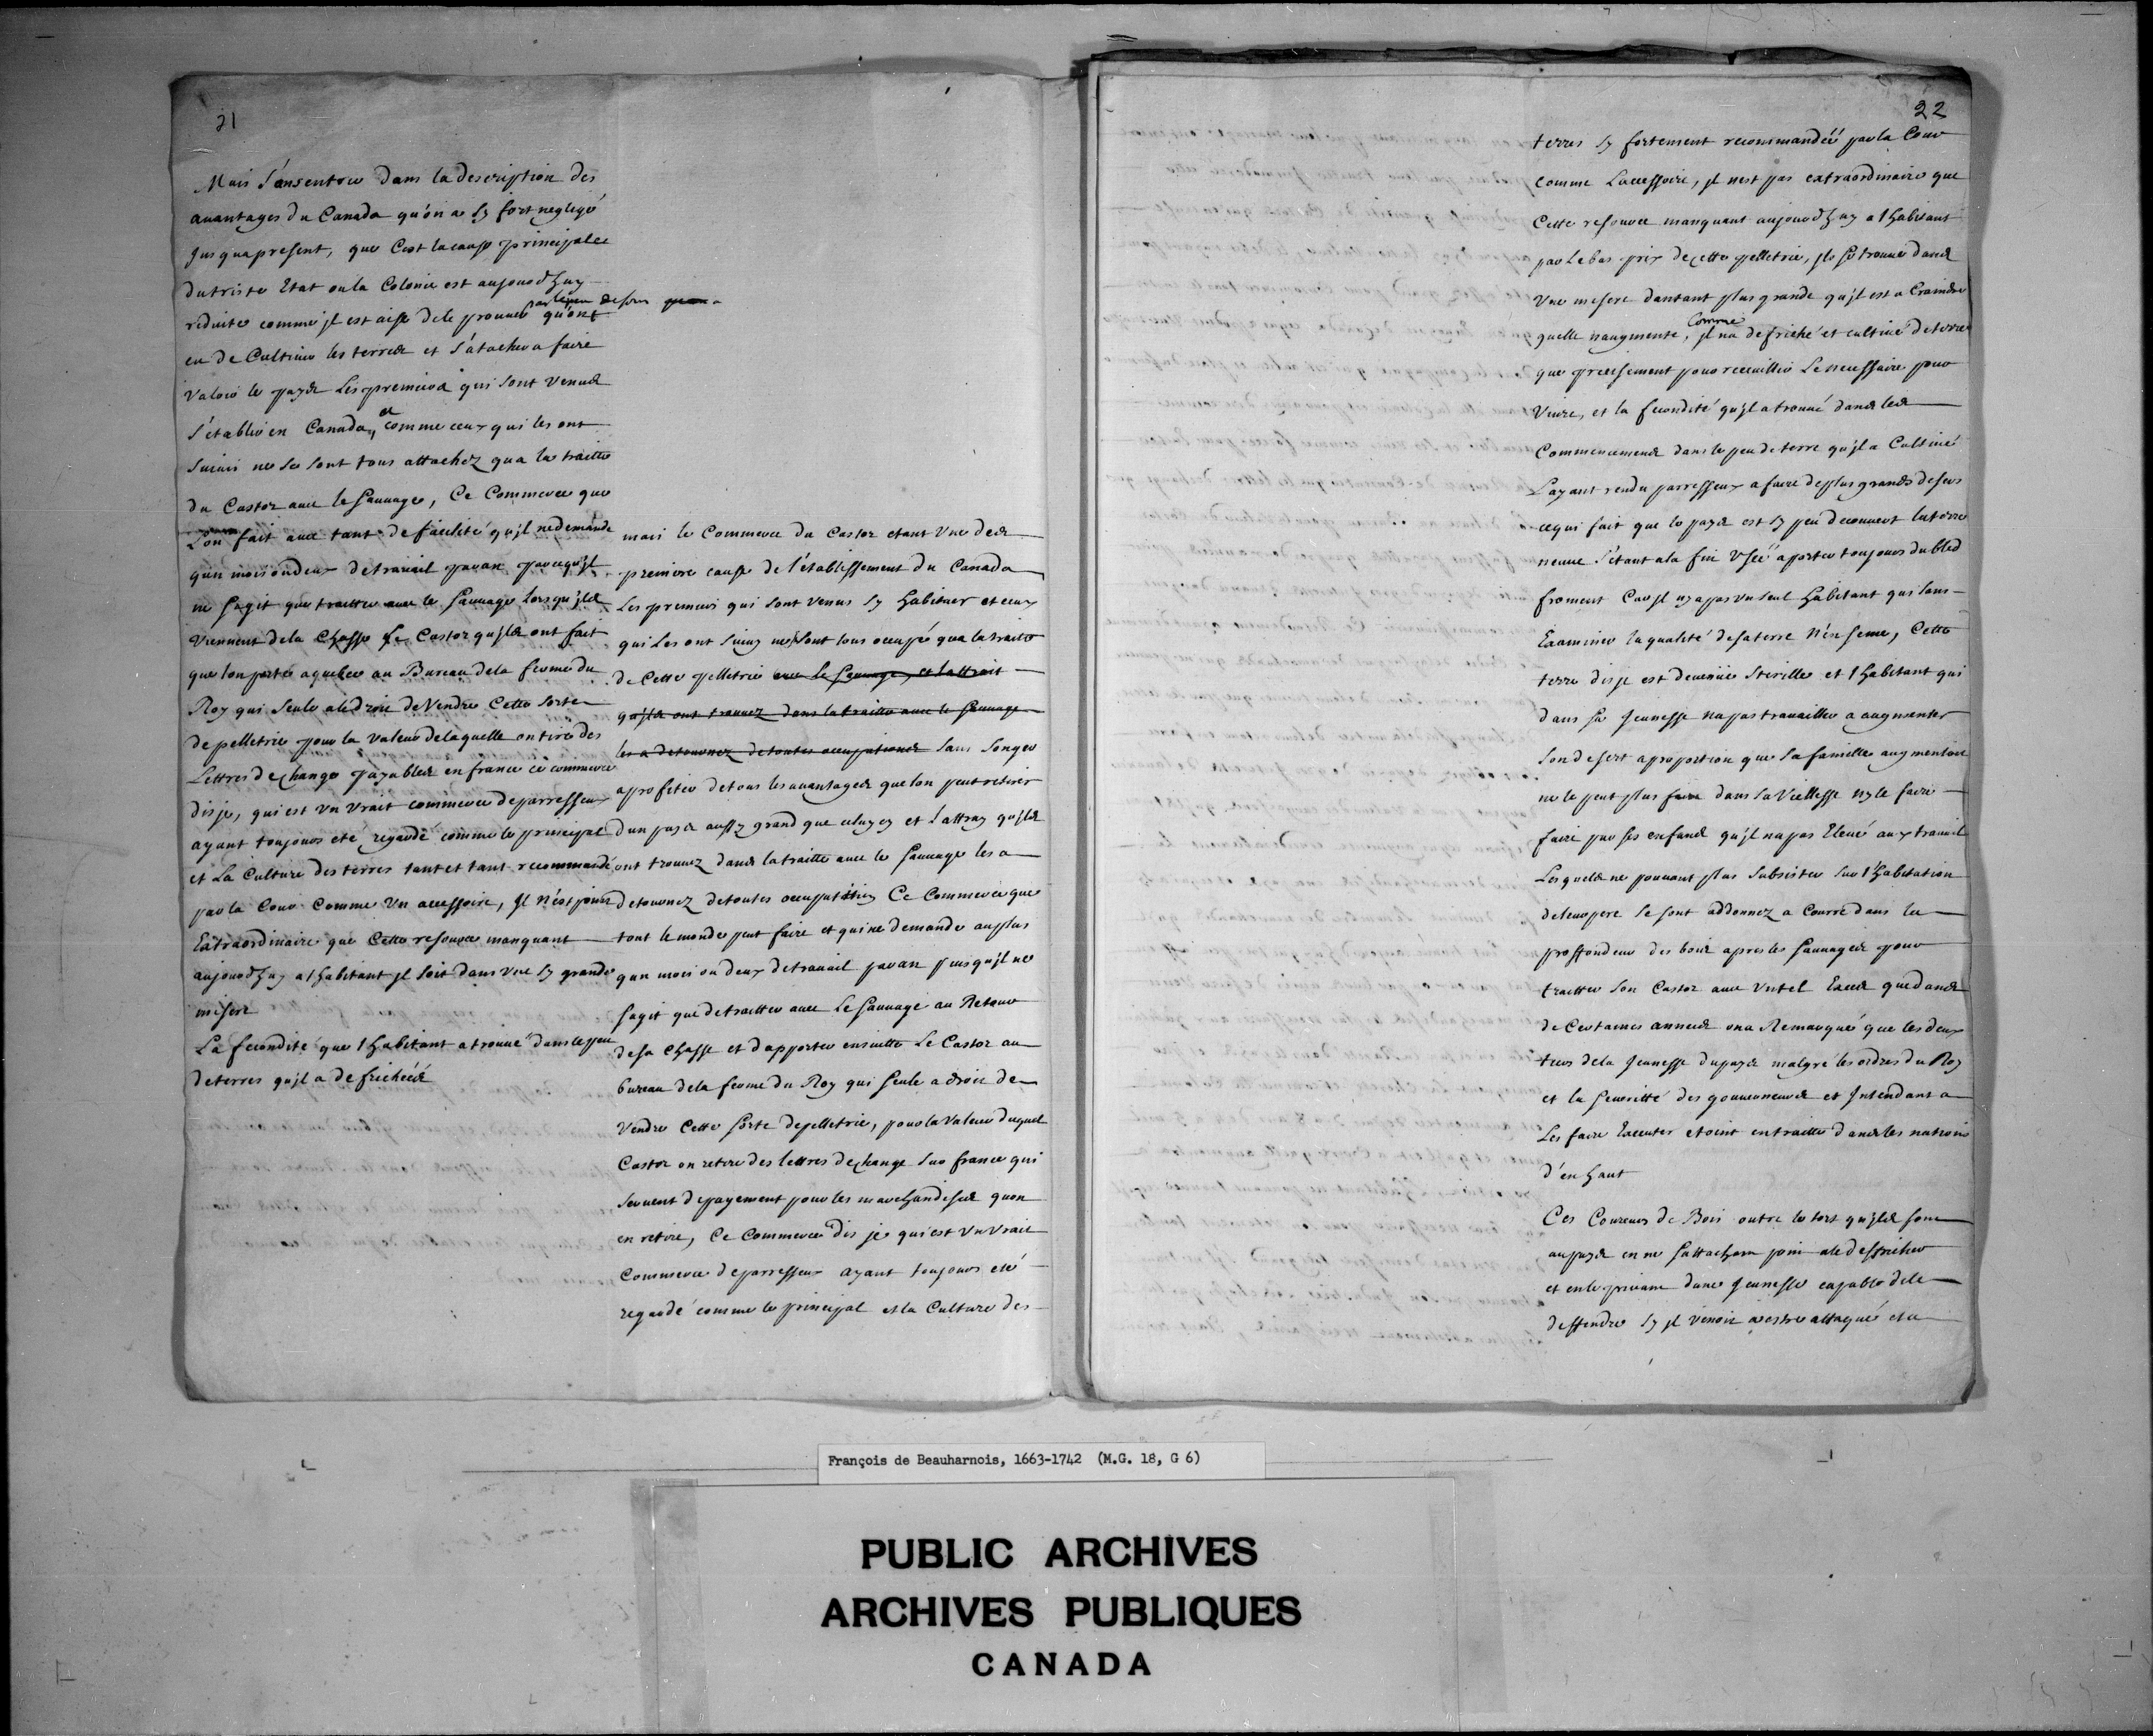 21
Mais s'ansentrer dans la description des
auantages du Canada qu'on a sy fort negligé
Jusquapresent, que C'est la cause principalle
dutriste Etat ou la Colonie est aujourdhuy
reduite comme jl est aisé de le prouver par le peu de soin qu'ont
eu de Cultiuer les terres et s'atacher a faire
valoir le payse Les premiers qui sont venus
s'établir en Canada, et comme ceux qui les ont
suiuis ne se sont tous attachez qua la traitte
du Castor auec le Sauuage, Ce Commerce que
L'on fait auec tant de facilité qu'jl ne demande
qun mois ou deux de trauail par an parcequ'jl
ne sagit que traitter auec le Sauuage lorsqu'jls
viennent de la Chasse le Castor qu'jls ont fait
que lon porte a quebec au Bureau de la ferme du
Roy qui seule a le droit de Vendre Cette sorte
de pelletrie pour la valeur de laquelle on tire des
Lettres de change payables en france ce commerce
disje, qui est vn vrait commerce de parresseux
ayant toujours eté regardé comme le principal
et La Culture des terres tant et tant recommandé
par la Cour Comme Un accessoire, Jl n'est point
Extraordinaire que Cette resource manquant
aujourdhuy a l'habitant jl soit dans vne sy grande
misere
La fecondité que l'habitant a trouué dans le peu
de terres qu'jl a defrichéés
mais le Commerce du Castor etant Vne des
premiere cause de l'établissement du Canada
Les premiers qui sont venus sy habituer et ceux
qui les ont suiuy ne se sont tous occupé qua la traitte
de Cette pelletrie auec le Sauuage, et lattrait
qu'jls ont trouuez dans la traitte auec le Sauuage
les a detournez de toutes occupations sans songer
a profiter de tous les auantages que lon peut retirer
dun payse aussy grand que celuy cy et Lattray qu'jls
ont trouuez dans la traitte auec le Sauuage les a
detournez de toutes occupation Ce Commerce que
tout le monde peut faire et qui ne demande au plus
qun mois ou deux de trauail par an puisqu'jl ne
sagit que de traitter auec Le Sauuage au Retour
de sa Chasse et d'apporter ensuitte Le Castor au
bureau de la ferme du Roy qui seule a droit de
Vendre Cette sorte de pelletrie, pour la valeur duquel
Castor on retire des lettres de change sur france qui
seruent de payement pour les marchandises quon
en retire, Ce Commerce dis je qui est vn vrait
Commerce de parresseux ayant toujours eté
regardé comme le principal et la Culture des
22
terres sy fortement recommandéé par la Cour
comme L'accessoire, jl n'est pas extraordinaire que
Cette resource manquant aujourdhuy a l'habitant
par le bas prix de cette pelletrie, jls se trouue dans
Vne misere dautant plus grande qu'jl est a Craindre
quelle naugmente, Comme jl na defriché et cultiué de terre
que precisement pour receuillir Le necessaire pour
Viure, et la fecondité qu'jl a trouué dans les
Commencements dans le peu de terre qu'jl a Cultiué
Layant rendu parresseux a faire de plus grands desers
ce qui fait que le payse est sy peu decouuert la terre
neuue s'étant a la fin Vséé a porter toujours du bled
froment Car jl ny a pas vn seul habitant qui sans
Examiner la qualité de sa terre N'en seme, Cette
terre dis je est deuenüe Sterille et l'habitant qui
dans sa Jeunesse na pas trauaillé a augmenter
son desert a proportion que sa famille augmentoit
ne le peut plus faire dans sa Vieillesse ny le faire
faire par ses enfans qu'jl na pas Eleué au trauail
Lesquels ne pouuant plus subsister sur l'habitation
de leur pere se sont addonnez a Courre dans la
proffondeur des bois apres les Sauuages pour
traitter Son Castor auec vn tel Excés que dans
de Certaines années on a Remarqué que les deux
tiers de la Jeunesse du payse malgré les ordres du Roy
et la seueritté des gouuerneurs et Intendant a
Les faire Executer etoint en traitte dans les nations
d'en haut
Ces Coureurs de Bois outre le tort qu'jls font
au payse en ne sattachant point a le deffricher
et en le priuant dune Jeunesse capable de le
deffendre sy jl venoit a estre attaqué et a
François de Beauharnois, 1663-1742 (M.G. 18, G 6)
PUBLIC ARCHIVES
ARCHIVES PUBLIQUES
CANADA